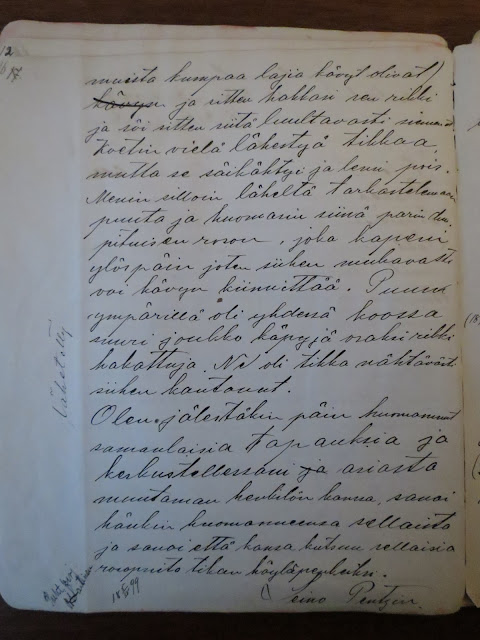 12
muista kumpaa lajia kävyt olivat)
kävyn ja sitten hakkasi sen rikki
ja söi sitten siitä luultavasti siemenet.
Koetin vielä lähestyä tikkaa,
mutta se säikähtyi ja lensi pois.
Menin silloin läheltä tarkastelemaan
puuta ja huomasin siinä parin tuu-
pituisen roson, joka kapeni
ylöspäin joten siihen mukavasti
voi kävyn kiinnittää. Puun
ympärillä oli yhdessä koossa
suuri joukko käpyjä osaksi rikki
hakattuja. Ne oli tikka nähtävästi
siihen kantanut.
Olen jälestäkin päin huomannut
samanlaisia tapauksia ja
keskustellessani ja asiasta
muutaman henkilön kanssa, sanoi
hänkin huomanneensa sellaista
ja sanoi että kansa kutsuu sellaisia
tikan
Lähetetty
18 99
Eino Pentzin.